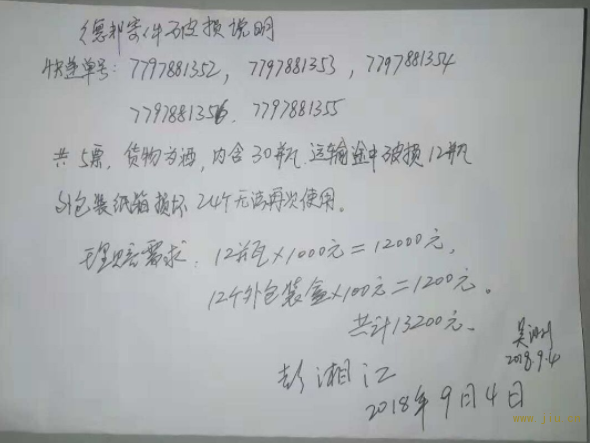 德邦寄件破损说明
快递单号: 7797881352, 7797881353, 7797881354
7797881356. 7797881355
共5票, 货物为酒, 内含30瓶. 运输途中破损12瓶
外包装纸箱损坏24个无法再次使用。
理赔需求: 12瓶×1000元=12000元,
12个外包装盒×100元=1200元。
共计13200元。
吴
2018.9.4
彭湘江
2018年9月4日